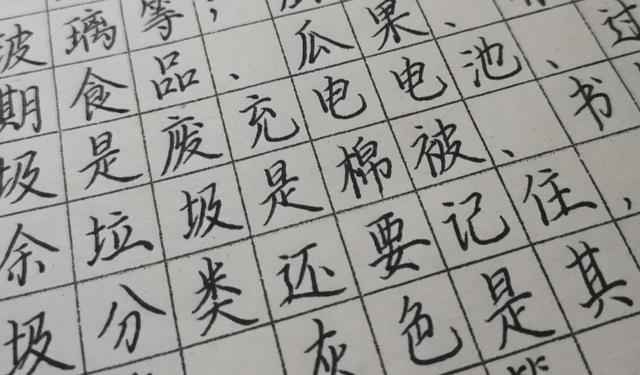 玻璃等；
期食品、瓜果、
圾是废充电电池、过
余垃圾是棉被、书
圾分类还要记住，
灰色是其